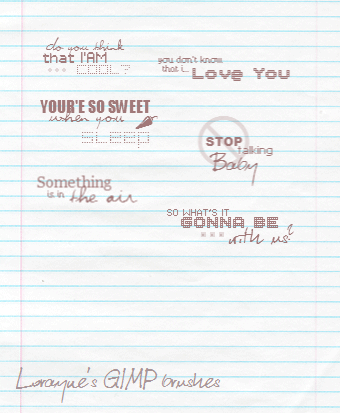 do you think
that I'AM
COOL?
you don't know
that i... Love You
YOUR'E SO SWEET
when you
SLEEP
STOP
talking
Baby
Something
is in the air
SO WHAT'S IT
GONNA BE
with us?
Lorayne's GIMP brushes